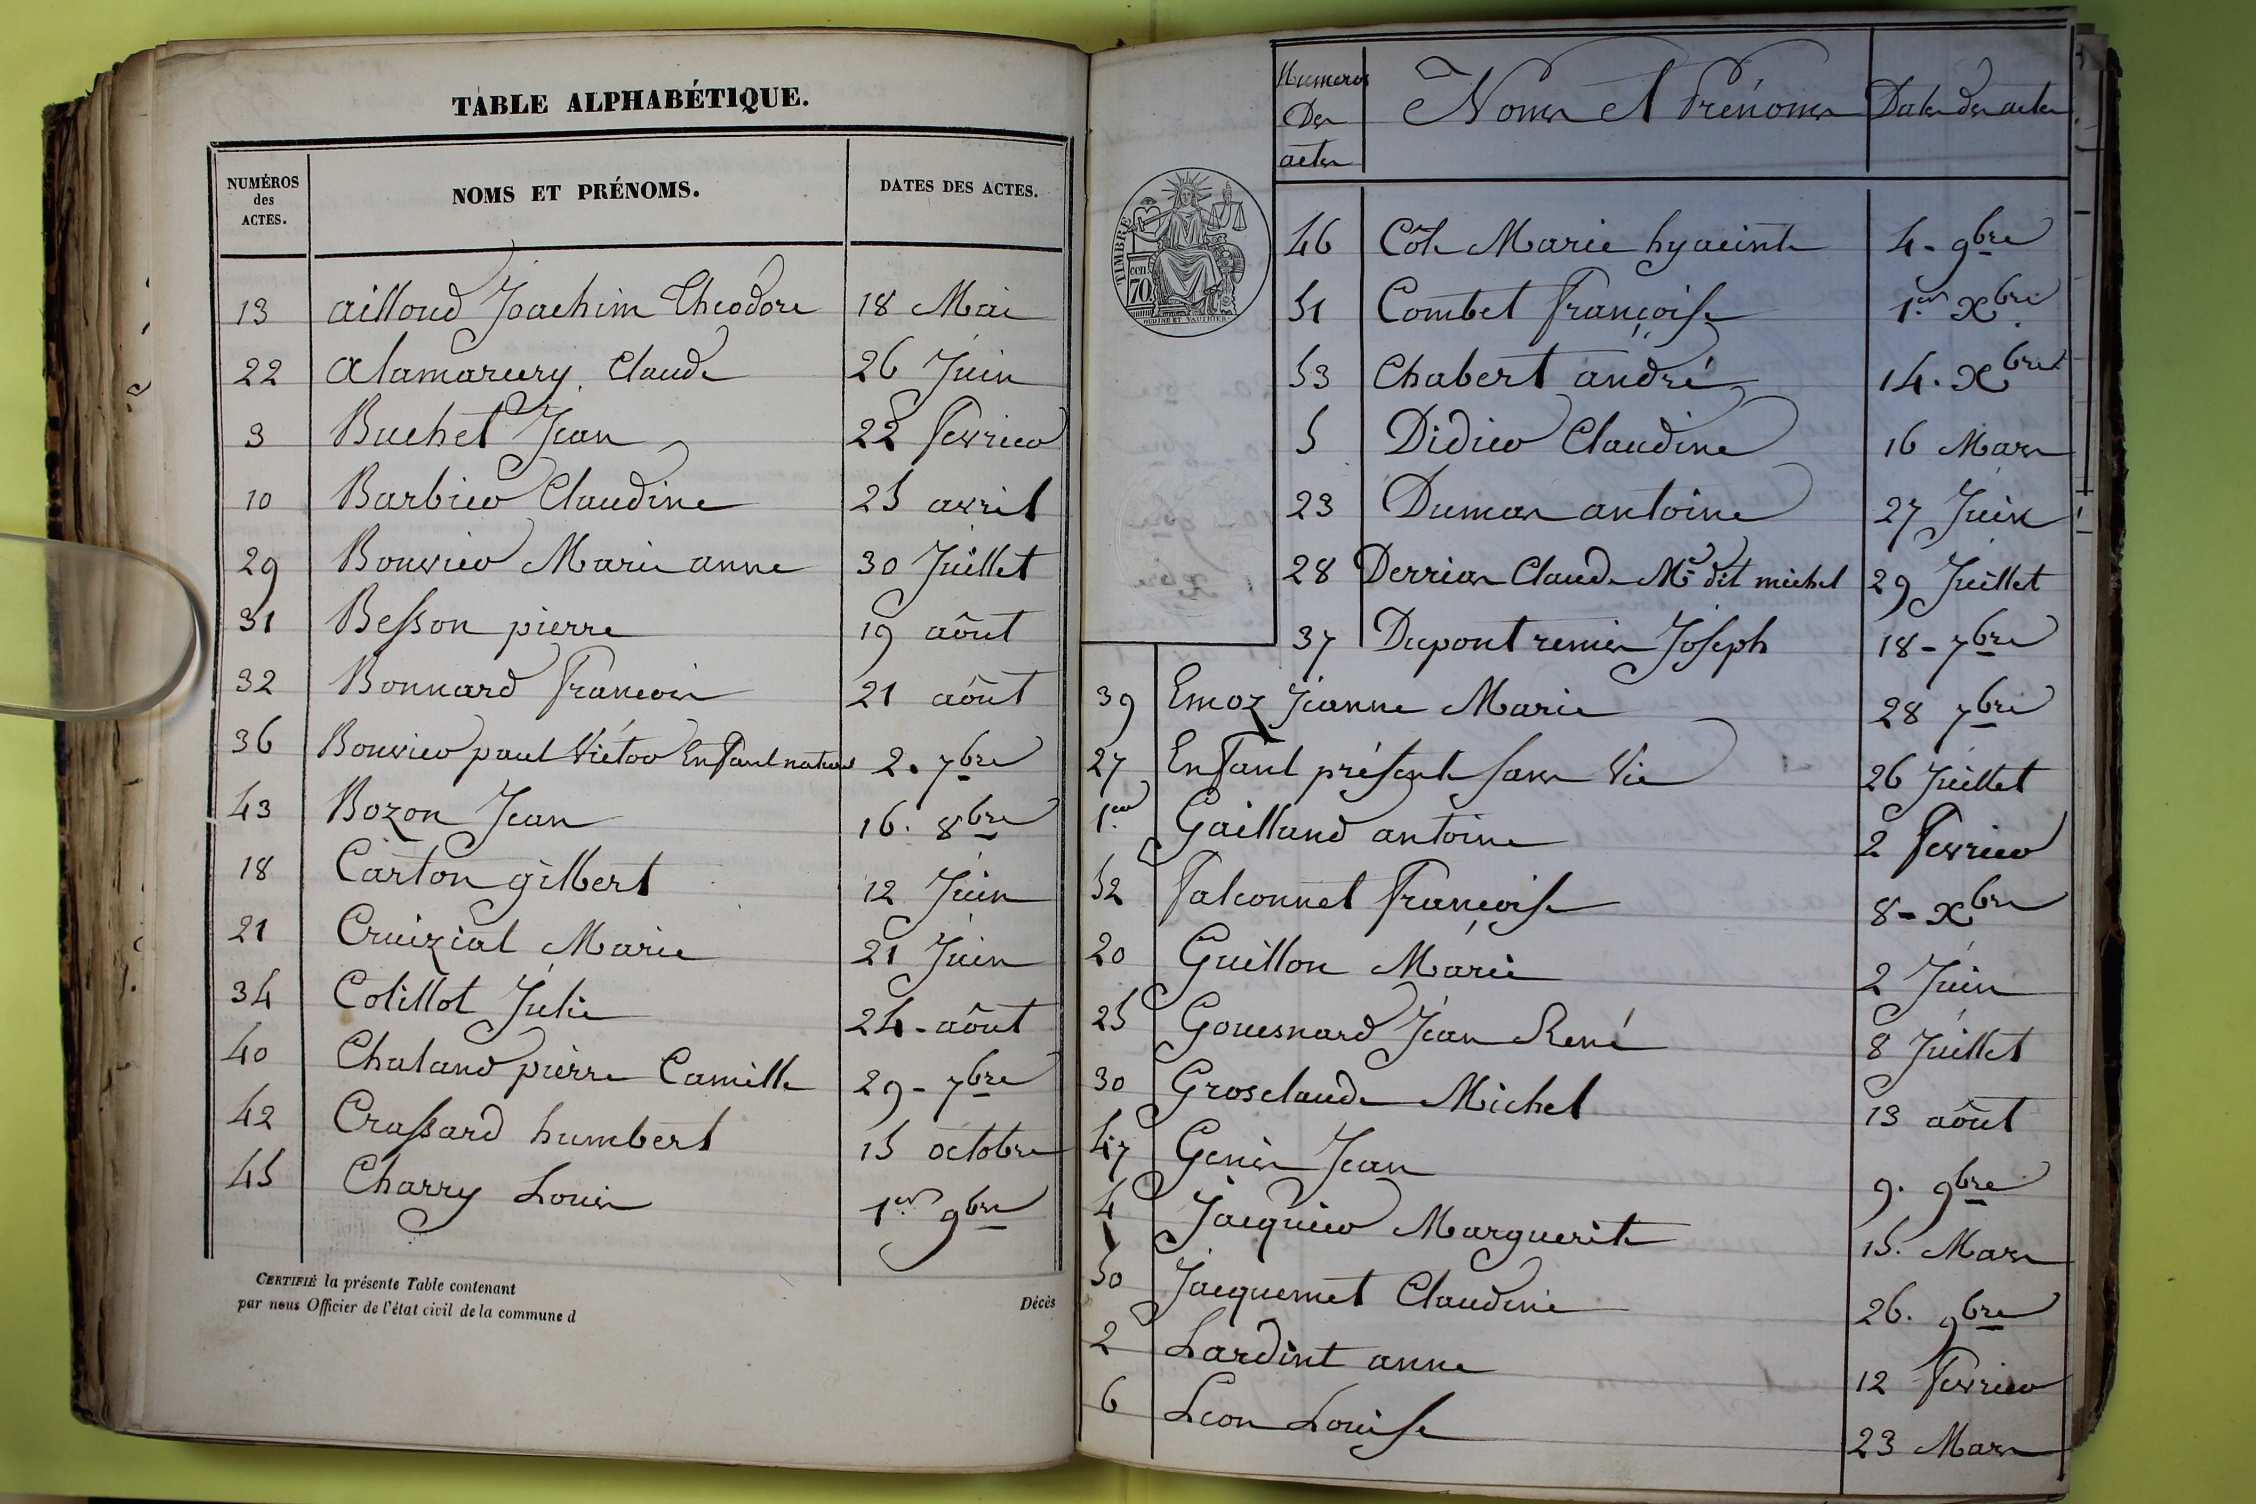 TABLE ALPHABÉTIQUE.
NUMÉROS des ACTES. NOMS ET PRÉNOMS. DATES DES ACTES.
13 ailloud Joachim Theodore 18 Mai
22 Claude 26 Juin
3 Buchet Jean 22 fevrier
10 Barbier Claudine 25 avril
29 Bouvier Marie anne 30 Juillet
31 Besson pierre 19 aôut
32 Bonnard francois 21 aôut
36 Bouvier paul Victor Enfant naturel 2. 7bre
43 Bozon Jean 16. 8bre
18 Carton gilbert 12 Juin
21 Cruizial Marie 21 Juin
34 Colillot Julie 24 - aôut
40 Chaland pierre Camille 29 - 7bre
42 Crassard humbert 15 octobre
45 Charry Louis 1er 9bre
CERTIFIÉ la présente Table contenant
par nous Officier de l'état civil de la commune d
Décès
Numeros Des actes Noms et Prénoms Dates des actes
TIMBRE
cen.
70
OUDINÉ ET VAUTHIER
46 Côte Marie hyacinte 4 - 9bre
51 Combet françoise 1er Xbre
53 Chabert andré 14. Xbre
5 Didier Claudine 16 Mars
23 Dumas antoine 27 Juin
28 Derrias Claude Me dit michel 29 Juillet
37 Dupont remis Joseph 18 - 7bre
39 Emoz Jeanne Marie 28 7bre
27 Enfant présenté sans Vie 26 Juillet
1er Gailland antoine 2 fevrier
52 Falconnet françoise 8 - Xbre
20 Guillon Marie 2 Juin
25 Gouesnard Jean René 8 Juillet
30 Grosclaude Michel 13 aôut
47 Genis Jean 9. 9bre
4 Jacquier Marguerite 15. Mars
50 Jacquemet Claudine 26. 9bre
2 Lardint anne 12 fevrier
6 Leon Louise 23 Mars